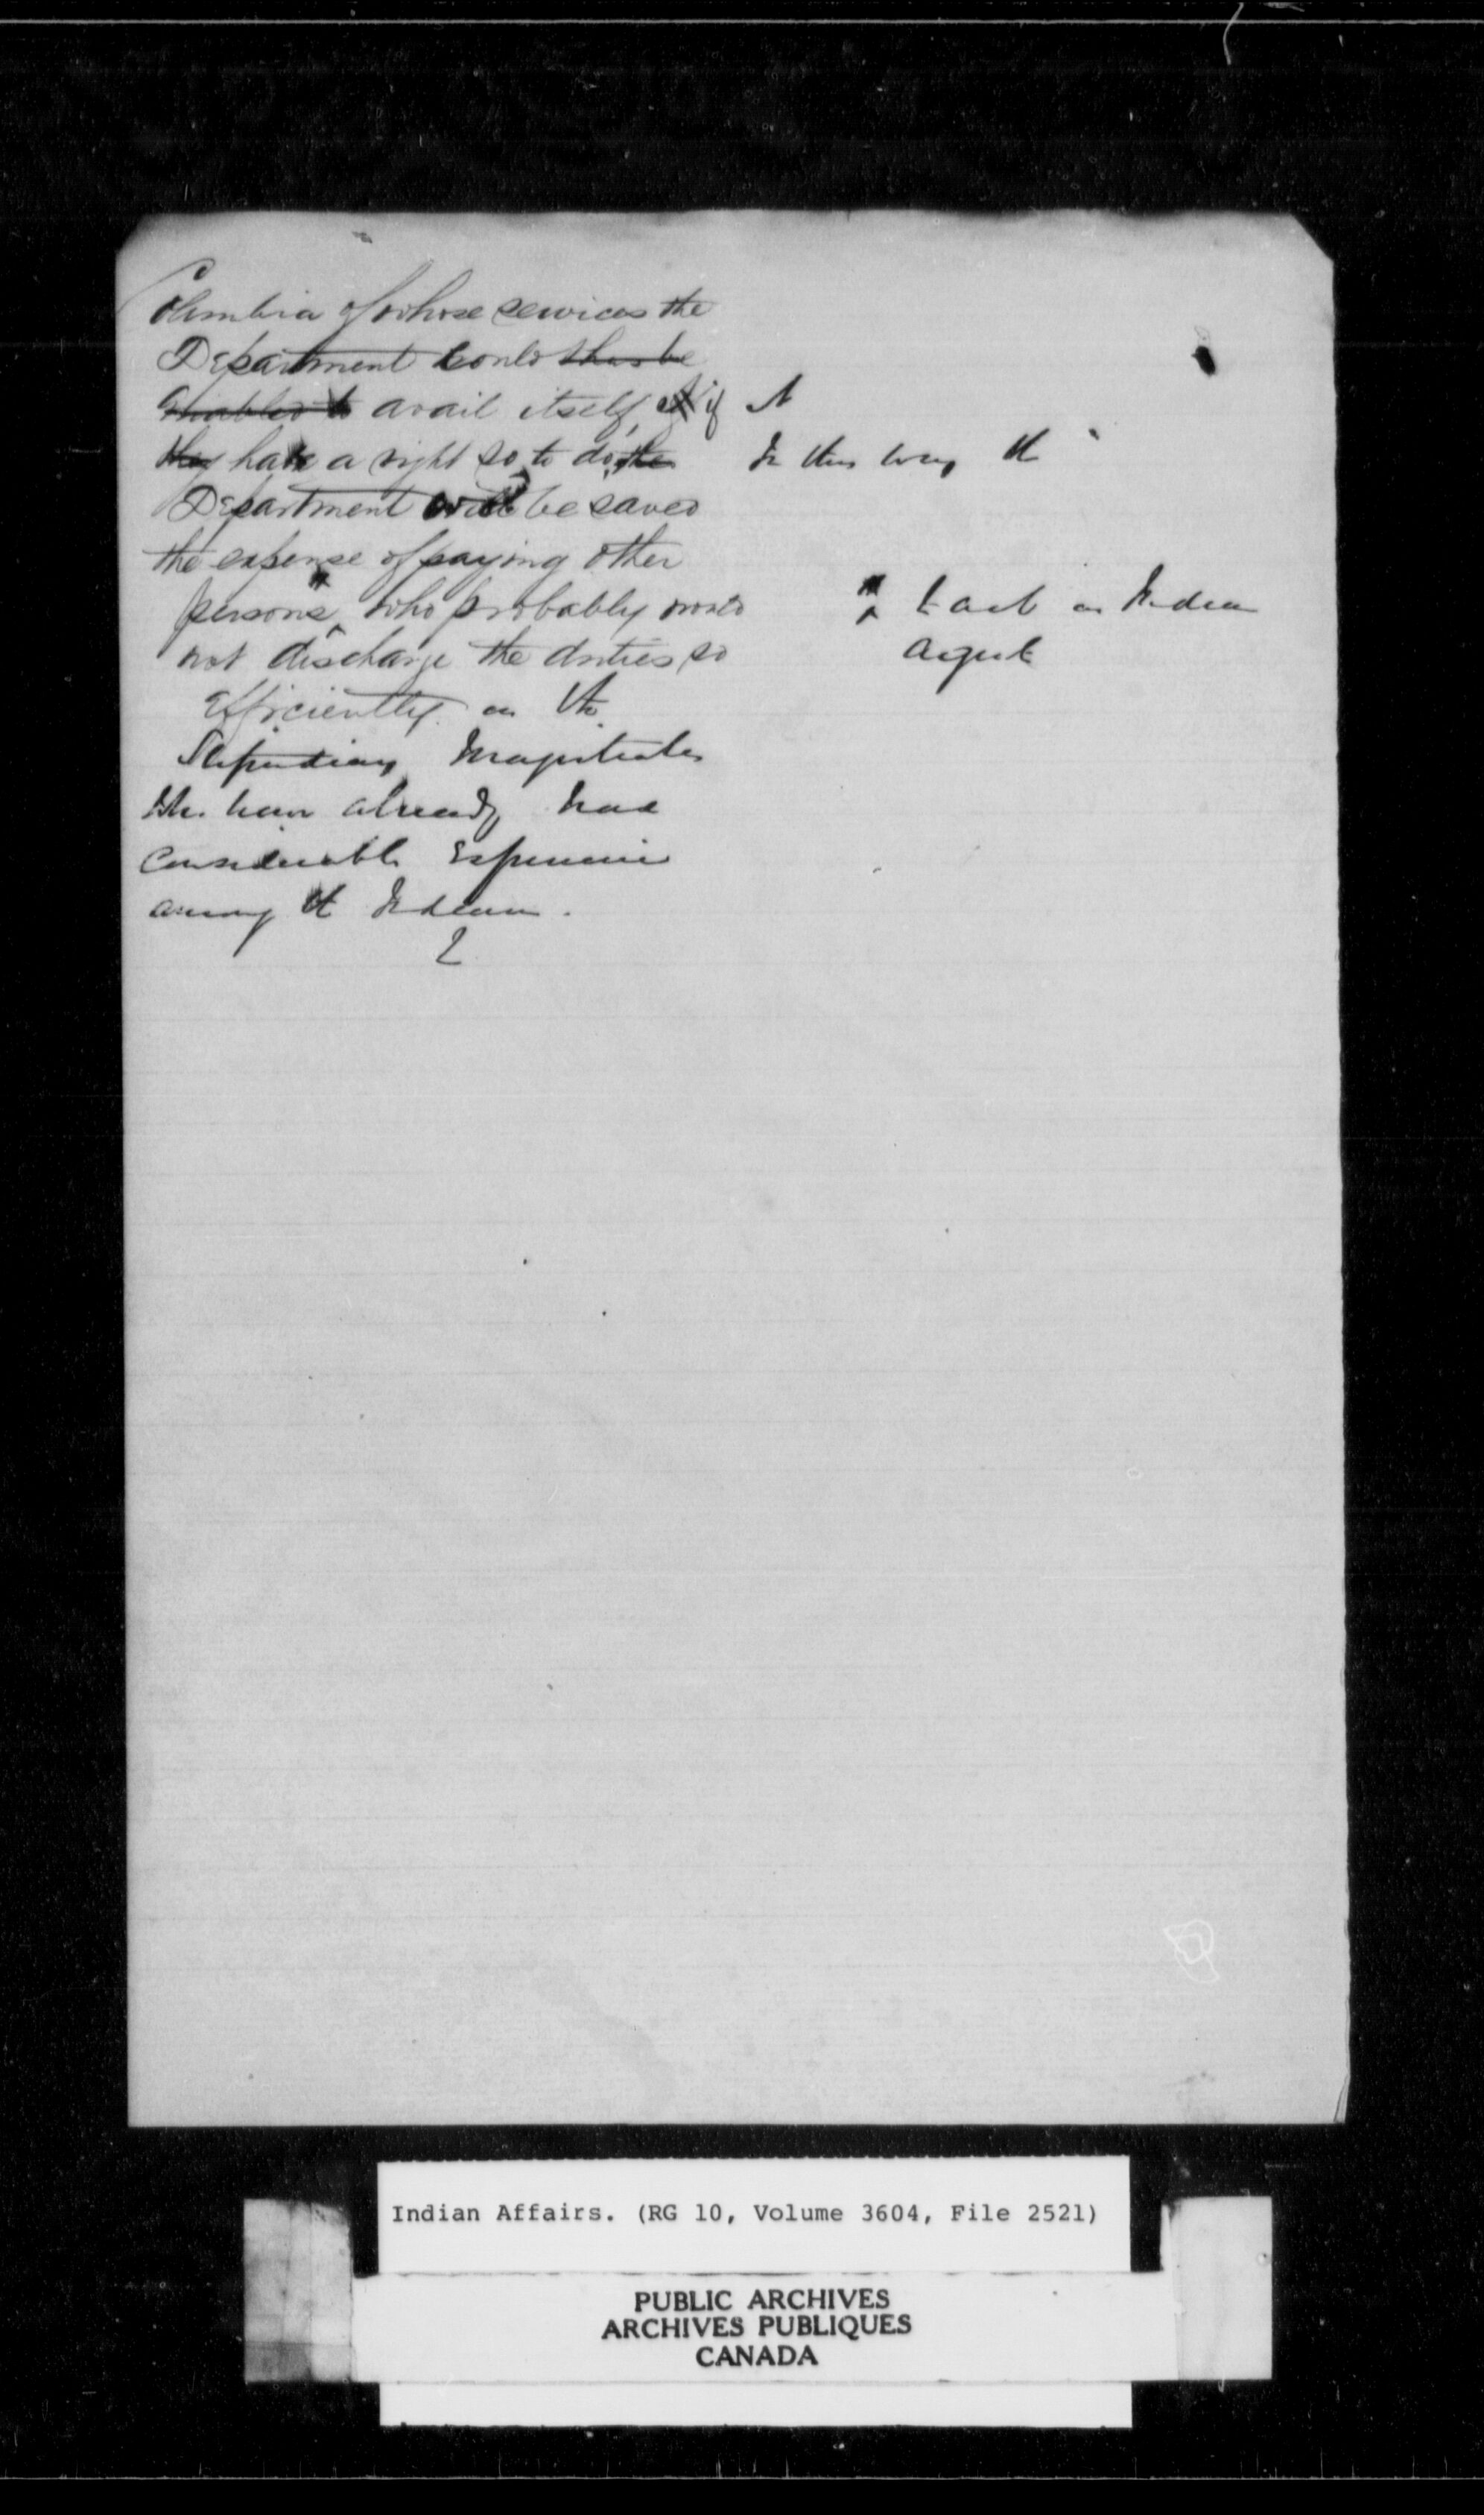 Columbia of whose services the
Department could thus be
enabled to avail itself, if if it
they have a right so to do, the In this way the
Department will be saved
the expense of paying other
persons, who probably would to act as Indian
not discharge the duties so Agent
efficiently as the
Stipendiary Magistrates
who have already had
considerable experience
among the Indians.
Indian Affairs. (RG 10, Volume 3604, File 2521)
PUBLIC ARCHIVES
ARCHIVES PUBLIQUES
CANADA